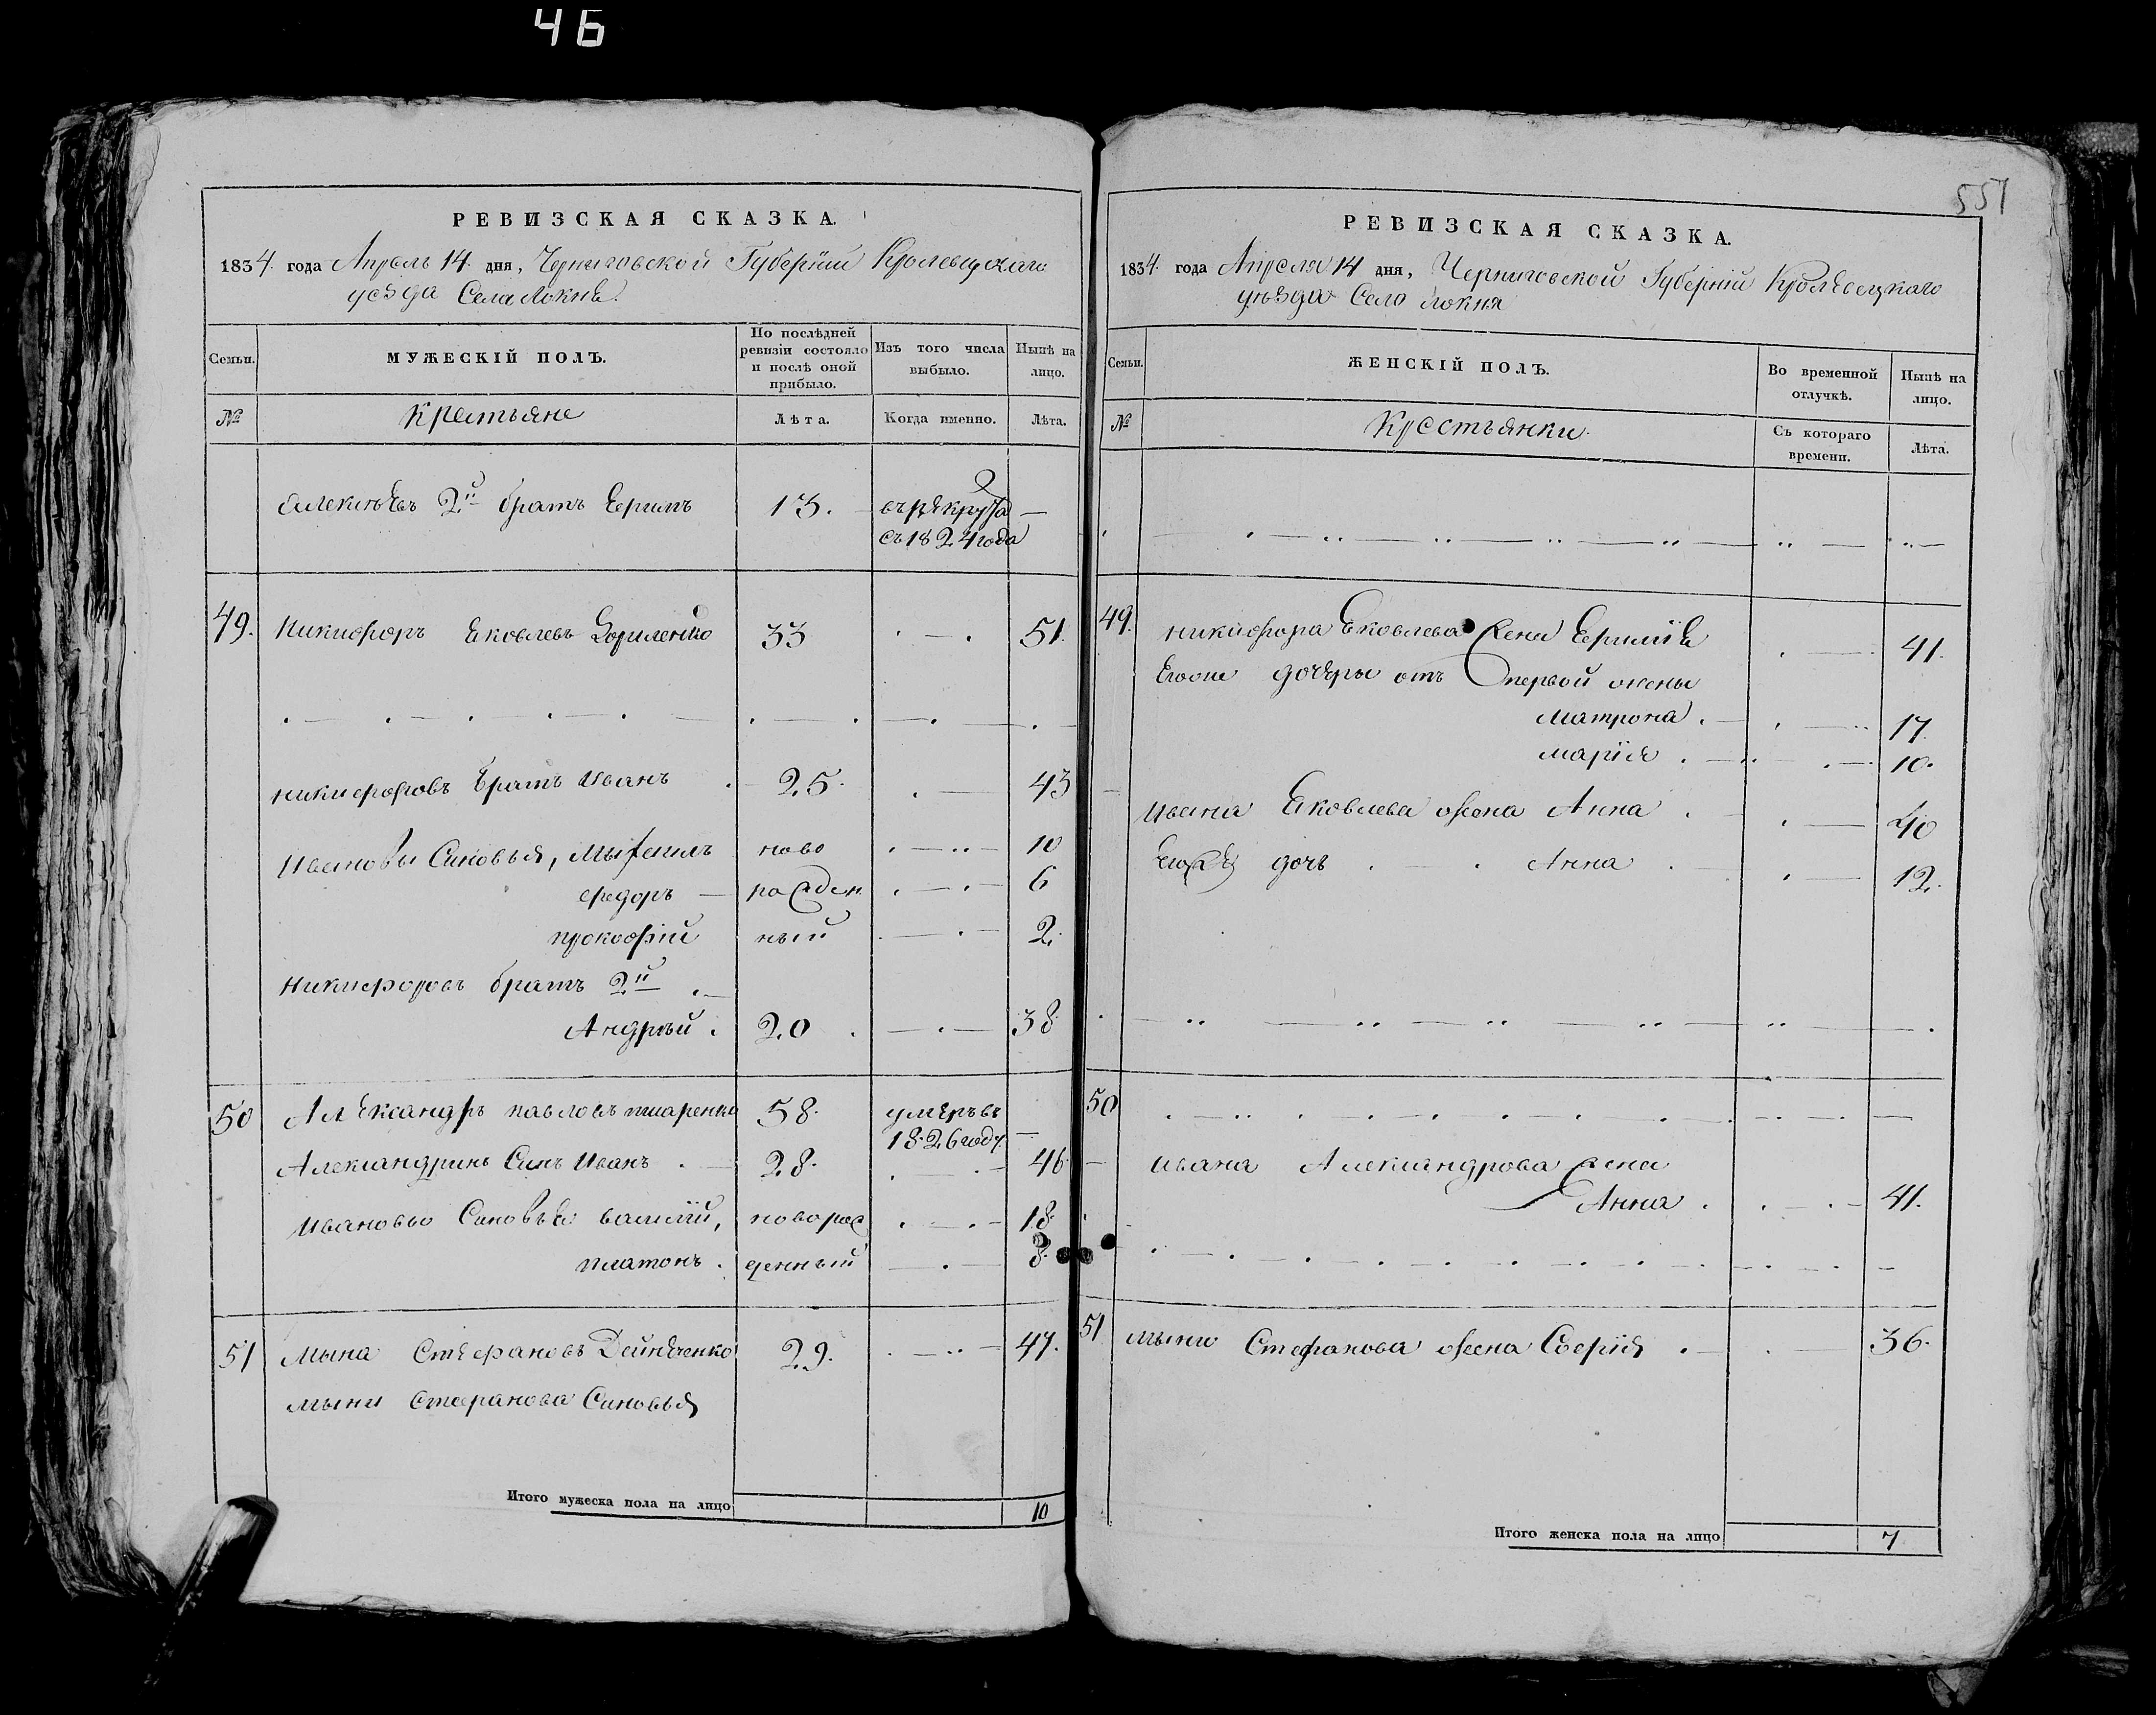 46
557
РЕВИЗСКАЯ СКАЗКА.
1834. года Апрель 14 дня, Черниговской Губернии Кролевецкаго
уезда Села Локнѣ.
Семьи. МУЖЕСКІЙ ПОЛЪ. По послѣдней ревизіи состояло и послѣ оной прибыло. Изъ того числа выбыло. Нынѣ на лицо.
№ Крестьяне Лѣта. Когда именно. Лѣта.
2й братъ 13. —
съ 1824 года
49. Никифоръ Яковлевъ 33 51.
никифоровъ братъ Иванъ 25. 43
Ивановы Синовья, ново 10
федоръ — рожден 6
прокофій ный 2.
Никифоровъ братъ 2й
Андрѣй. 20 38.
50 Александръ павловъ 58. умеръ въ
1826 году. —
Александринъ Синъ Иванъ 28. 46
Ивановы Синовья василій, новорож 18.
платонъ. денный 8.
51 Мына Стефановъ Дейнеченко 29. 47.
мыни Стефанова Синовья
Итого мужеска пола на лицо 10
РЕВИЗСКАЯ СКАЗКА.
1834. года Апреля 14 дня, Черниговской Губерніи Кролевецкаго
уѣзда Село Локня
Семьи. ЖЕНСКІЙ ПОЛЪ. Во временной отлучкѣ. Нынѣ на лицо.
№ Крестьянки. Съ котораго времени. Лѣта.
49. никифора Яковлева жена 41.
Егоже дочеры отъ первой жены
Матрона. 17.
марія. 10.
Ивана Яковлева жена Анна 40
Егоже дочь Анна 12.
50
Ивана Александрова жена
Анна. 41.
51 мыни Стефанова жена Софія 36.
Итого женска пола на лицо 7